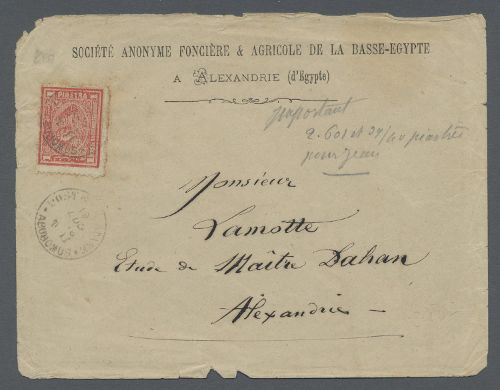 SOCIÉTÉ ANONYME FONCIÈRE & AGRICOLE DE LA BASSE-EGYPTE
A ALEXANDRIE (d'Egypte)
PIASTRA
Important
2.601 et 39/40 piastres
pour Jean
Monsieur
Lamotte
Etude de Maître Dahan
Alexandrie